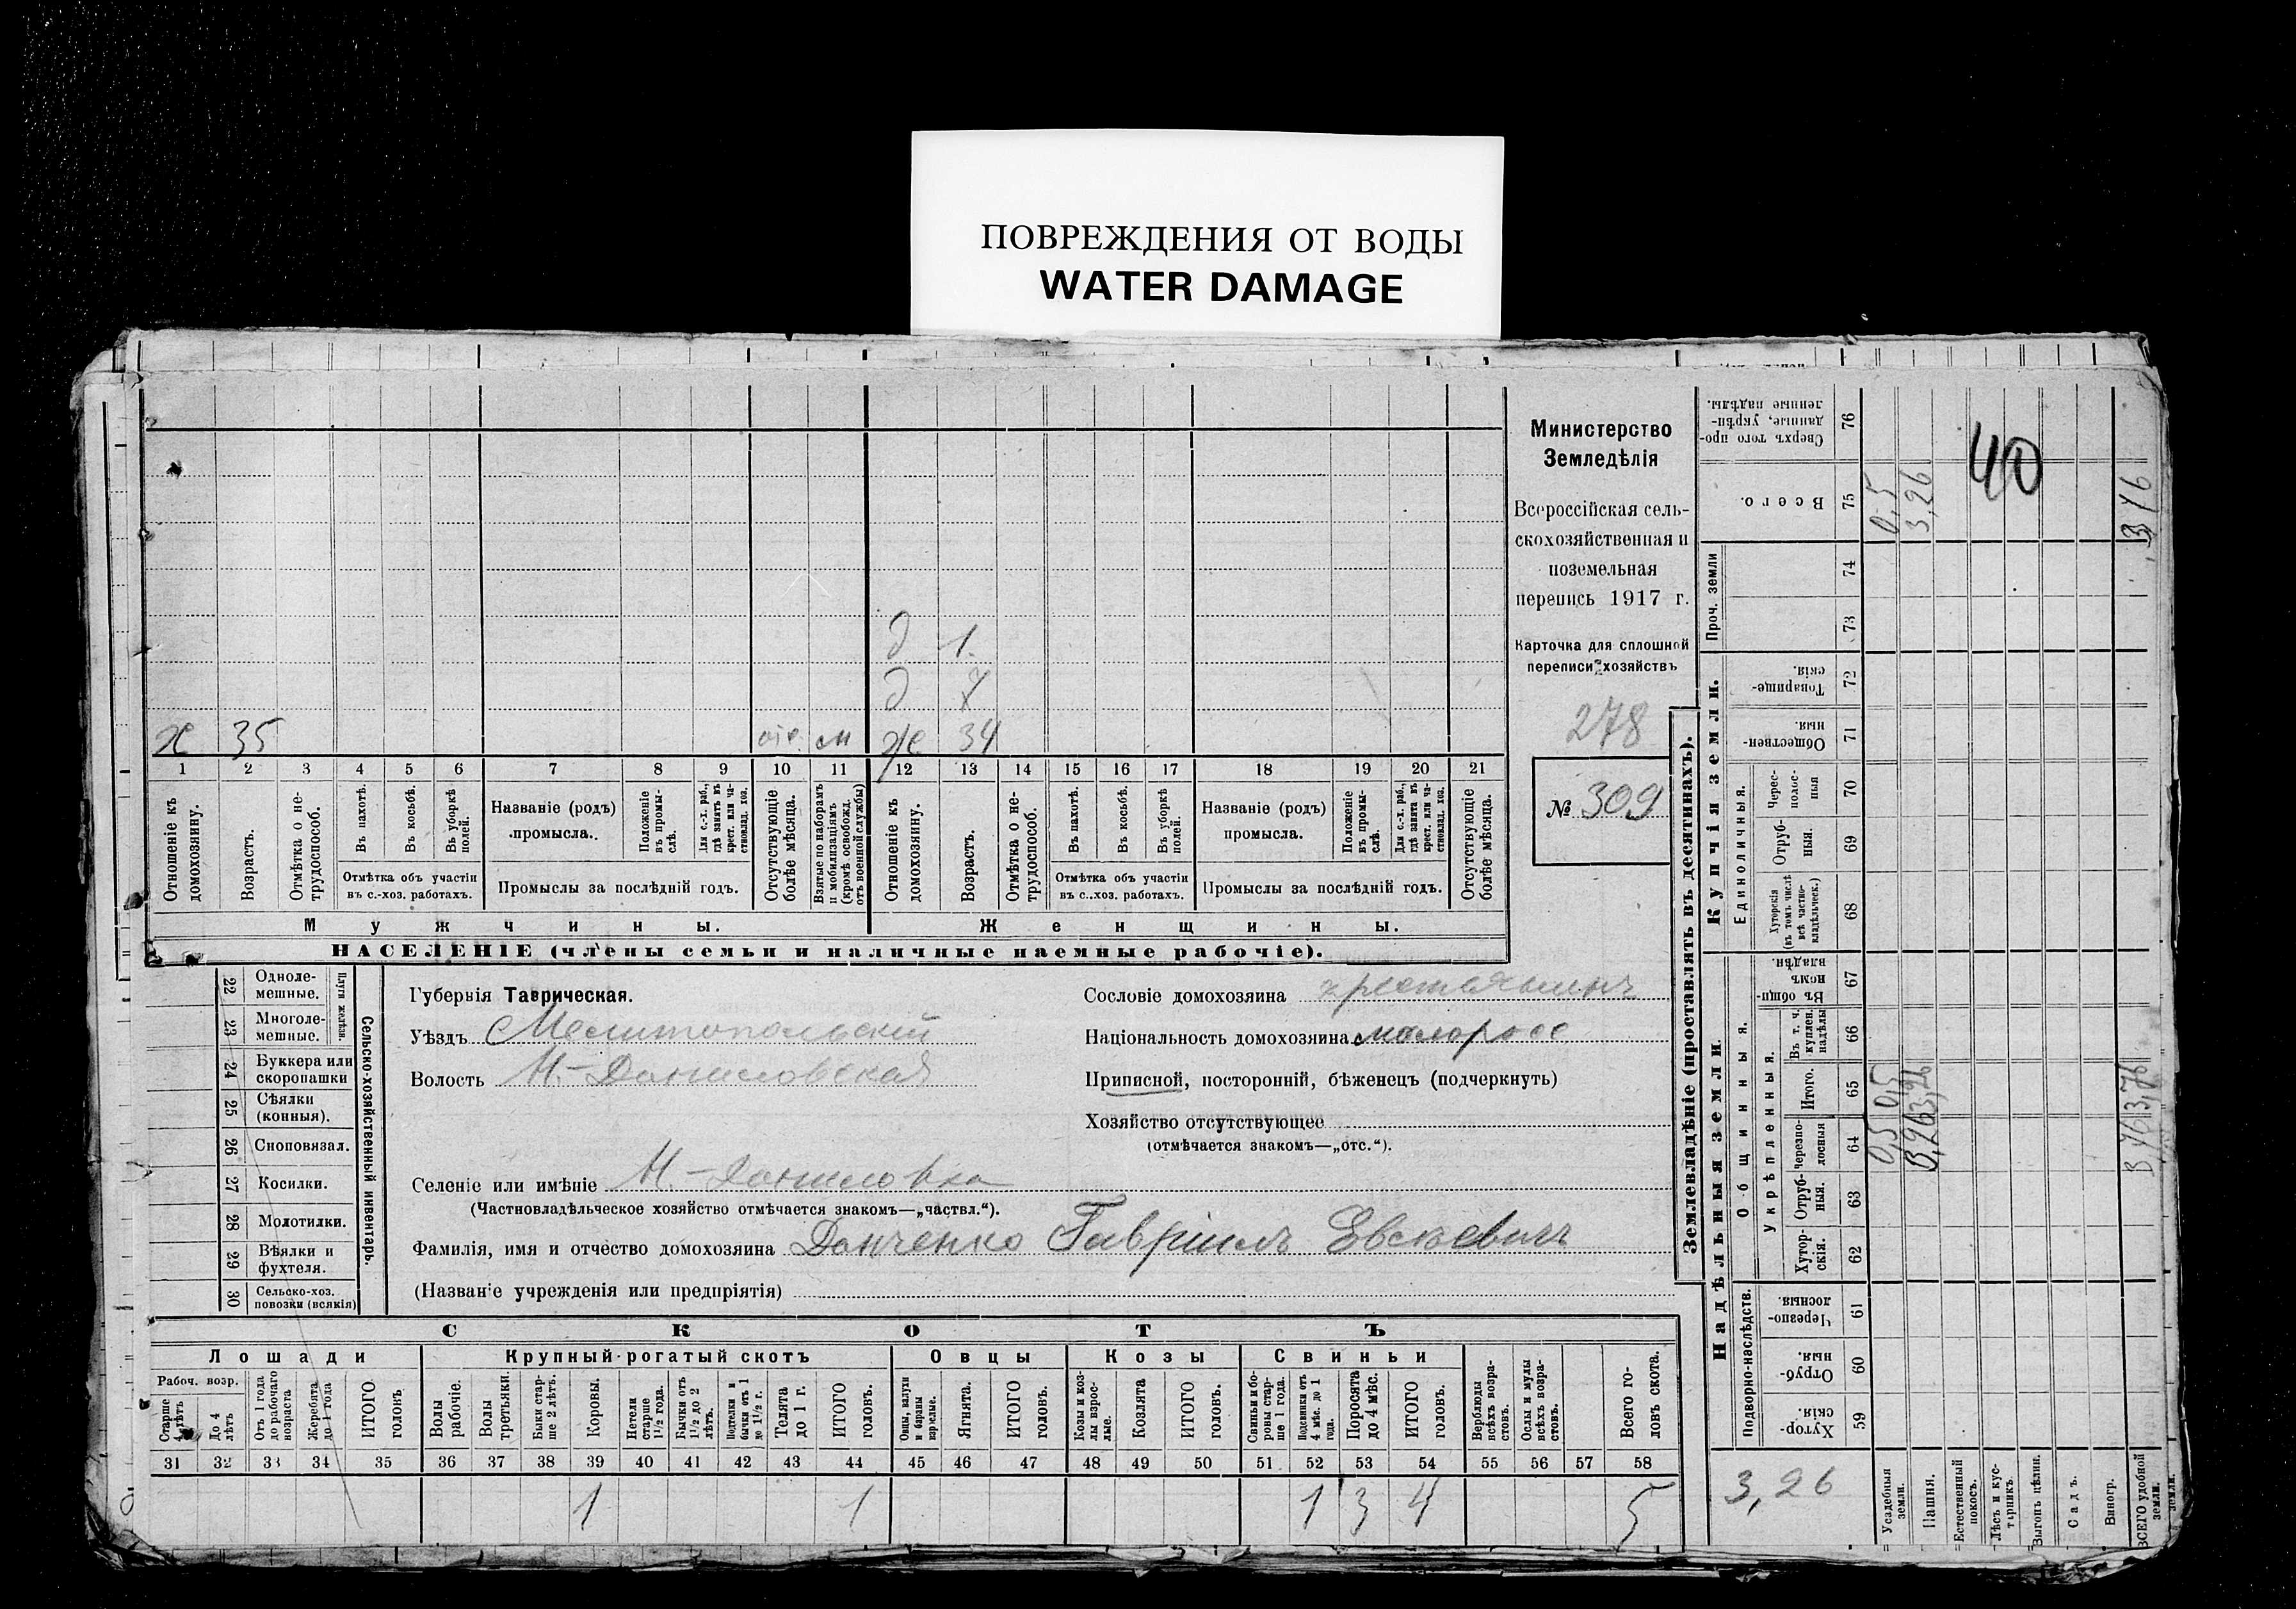 ПОВРЕЖДЕНИЯ ОТ ВОДЫ
WATER DAMAGE
Министерство
Земледѣлія
Всероссійская сель-
скохозяйственная и
поземельная
перепись 1917 г.
Карточка для сплошной
переписи хозяйствъ
278
№ 309
д 1.
д
х 35 отс. м ж 34
1 2 3 4 5 6 7 8 9 10 11 12 13 14 15 16 17 18 19 20 21
Отношеніе къ домохозяину.
Возрастъ.
Отмѣтка о не-трудоспособ.
Въ пахотѣ.
Въ косьбѣ.
Въ уборкѣ полей.
Отмѣтка объ участіи
въ с.-хоз. работахъ.
Названіе (родъ)
промысла.
Положеніе въ промы-слѣ.
Для с.-х. раб., гдѣ занятъ въ крест. или ча-стновлад. хоз.
Промыслы за послѣдній годъ.
Отсутствующіе болѣе мѣсяца.
Взятые по наборамъ и мобилизаціямъ (кромѣ освобожд. отъ военной службы)
Отношеніе къ домохозяину.
Возрастъ.
Отмѣтка о не-трудоспособ.
Въ пахотѣ.
Въ косьбѣ.
Въ уборкѣ полей.
Отмѣтка объ участіи
въ с.-хоз. работахъ.
Названіе (родъ)
промысла.
Положеніе въ промы-слѣ.
Для с.-х. раб., гдѣ занята въ крест. или ча-стновлад. хоз.
Промыслы за послѣдній годъ.
Отсутствующіе болѣе мѣсяца.
Мужчины. Женщины.
НАСЕЛЕНІЕ (члены семьи и наличные наемные рабочіе).
Сельско-хозяйственный инвентарь.
Плуги желѣзн.
22 Одноле-мешные.
23 Многоле-мешные.
24 Буккера или скоропашки
25 Сѣялки (конныя).
26 Сноповязал.
27 Косилки.
28 Молотилки.
29 Вѣялки и фухтеля.
30 Сельско-хоз. повозки (всякія)
Губернія Таврическая.
Уѣздъ Мелитопольскій
Волость Н.-Даниловская
Сословіе домохозяина крестьянинъ
Національность домохозяина малоросс
Приписной, посторонній, бѣженецъ (подчеркнуть)
Хозяйство отсутствующее
(отмѣчается знакомъ—„отс.“).
Селеніе или имѣніе Н.-Даниловка
(Частновладѣльческое хозяйство отмѣчается знакомъ—„частвл.“).
Фамилія, имя и отчество домохозяина Данченко Гавріилъ Евсѣевичъ
(Названіе учрежденія или предпріятія)
СКОТЪ
Лошади Крупный рогатый скотъ Овцы Козы Свиньи
Рабоч. возр.
Старше 4 лѣтъ
До 4 лѣтъ
Отъ 1 года до рабочаго возраста
Жеребята до 1 года
ИТОГО головъ
Волы рабочіе.
Волы третьяки.
Быки стар-ше 2 лѣтъ.
Коровы.
Нетели старше 1 1/2 года.
Бычки отъ 1 1/2 до 2 лѣтъ.
Подтелки и бычки отъ 1 до 1 1/2 г.
Телята до 1 г.
ИТОГО головъ.
Овцы, валухи и бараны взрослые.
Ягнята.
ИТОГО головъ.
Козы и коз-лы взрос-лые.
Козлята
ИТОГО головъ.
Свиньи и бо-ровы стар-ше 1 года.
Подсвинки отъ 4 мѣс. до 1 года.
Поросята до 4 мѣс.
ИТОГО головъ.
Верблюды всѣхъ возра-стовъ.
Ослы и мулы всѣхъ возра-стовъ.
Всего го-ловъ скота.
31 32 33 34 35 36 37 38 39 40 41 42 43 44 45 46 47 48 49 50 51 52 53 54 55 56 57 58
1 1 1 3 4 5
Землевладѣніе (проставлять въ десятинахъ).
Купчія земли.
Надѣльныя земли
Сверхъ того про-данные, укрѣп-ленные надѣлы. 76
Всего. 75
Проч. земли 74 73
Товарище-скія. 72
Обществен-ныя. 71
Единоличныя.
Черес-полос-ныя 70
Отруб-ныя. 69
Хуторскія (въ томъ числѣ всѣ частно-владѣльческ.) 68
Въ общи-номъ владѣн. 67
Общинныя.
Укрѣпленныя.
Въ т. ч. куплен. надѣлы 66
Итого. 65
Черезпо-лосныя 64
Отруб-ныя. 63
Хутор-скія. 62
Подворно-наслѣдств.
Черезпо-лосныя 61
Отруб-ныя. 60
Хутор-скія. 59
40
0,5
3,26
3,76
0,5 0,5
3,26 3,26
3,76 3,76
3,26
Усадебныя земли.
Пашня.
Естественный покосъ.
Лѣсъ и кус-тарникъ.
Выгонъ цѣлин.
Садъ.
Виногр.
ВСЕГО удобной земли.